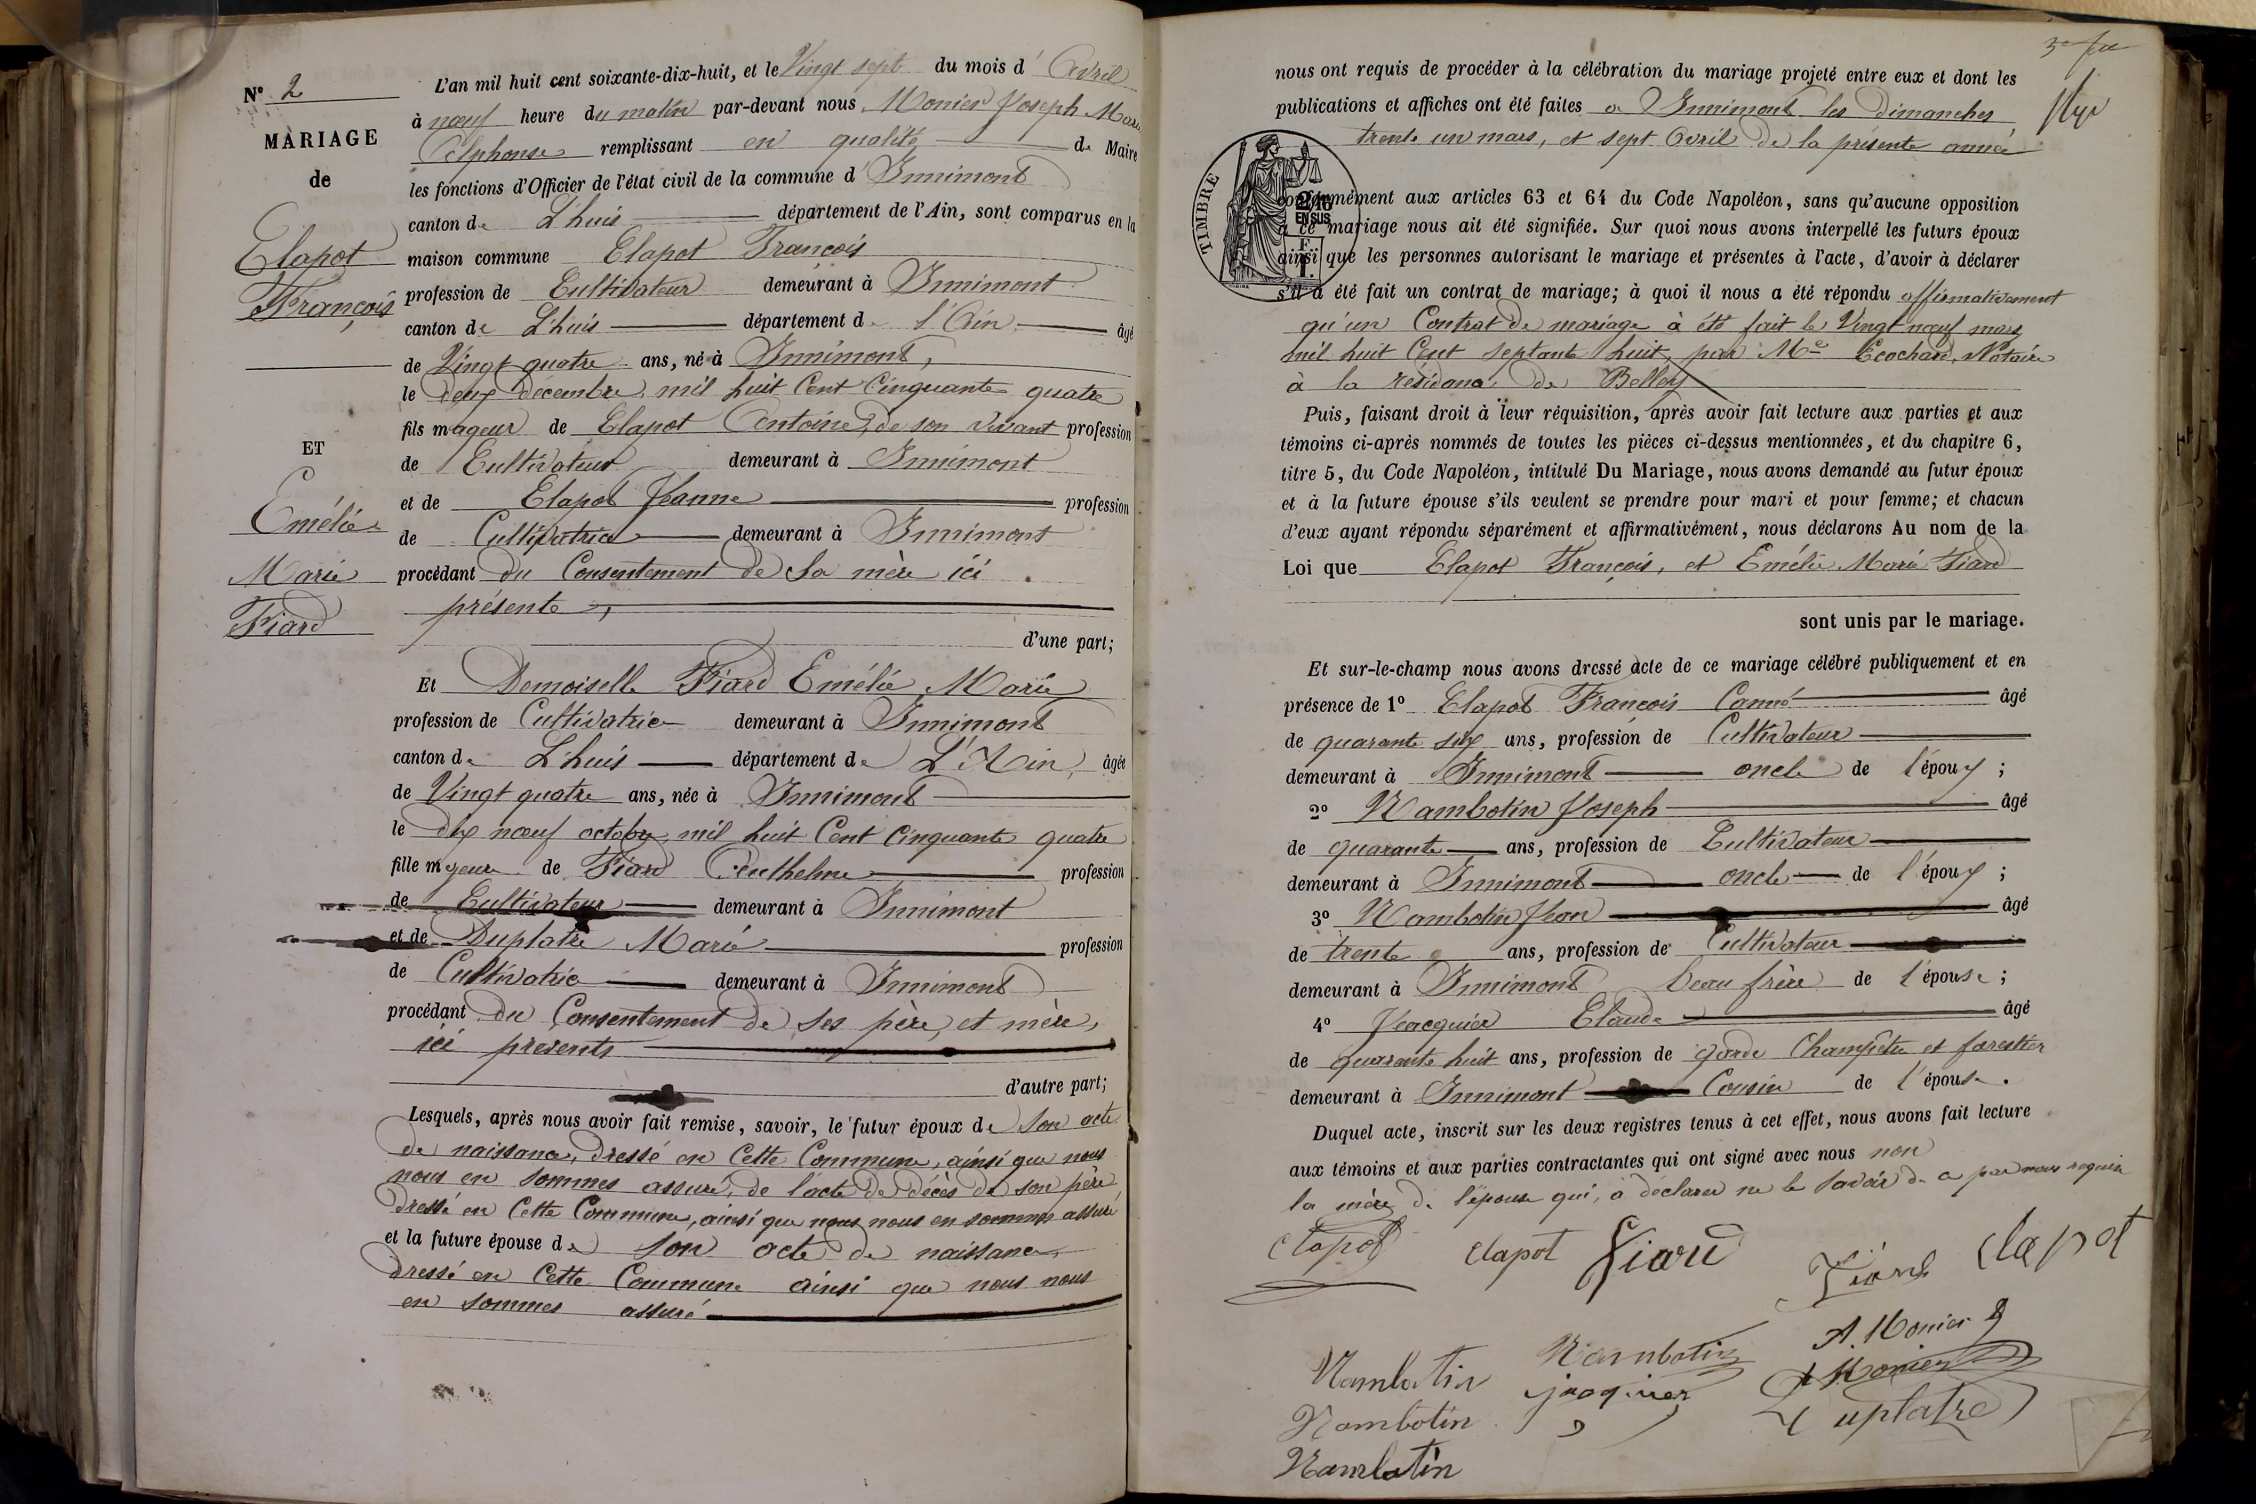 N° 2
MARIAGE
de
Clapot
François
ET
Emélie
Marie
Fiard
L'an mil huit cent soixante-dix-huit, et le Vingt sept du mois d' Avril
à nœuf heure du matin par-devant nous Monier Joseph Marie
Alphonse remplissant en qualité de Maire
les fonctions d'Officier de l'état civil de la commune d' Innimont
canton de L'huis département de l'Ain, sont comparus en la
maison commune Clapot François
profession de Cultivateur demeurant à Innimont
canton de L'huis département de l'Ain âgé
de Vingt quatre ans, né à Innimont,
le deux décembre mil huit Cent Cinquante quatre
fils mageur de Clapot Antoine, de son vivant profession
de Cultivateur demeurant à Innimont
et de Clapot Jeanne profession
de Cultivatrice demeurant à Innimont
procédant du Consentement de sa mère ici
présente,
d'une part;
Et Demoiselle Fiard Emélie Marie
profession de Cultivatrice demeurant à Innimont
canton de L'huis département de L'Ain, âgée
de Vingt quatre ans, née à Innimont
le dix nœuf octobre mil huit Cent Cinquante quatre
fille mgeure de Fiard Anthelme profession
de Cultivateur demeurant à Innimont
et de Duplatre Marie profession
de Cultivatrice demeurant à Innimont
procédant du Consentement de ses père, et mère,
ici présents
d'autre part;
Lesquels, après nous avoir fait remise, savoir, le futur époux de son acte
de naissance, dressé en Cette Commune, ainsi que nous
nous en sommes assuré, de l'acte de décès de son père
dressé en Cette Commune, ainsi que nous nous en sommes assuré
et la future épouse de son acte de naissance
dressé en Cette Commune ainsi que nous nous
en sommes assuré
nous ont requis de procéder à la célébration du mariage projeté entre eux et dont les
publications et affiches ont été faites a Innimont les Dimanches
trente un mars, et sept Avril de la présente année
TIMBRE
2/10
EN SUS
conformément aux articles 63 et 64 du Code Napoléon, sans qu'aucune opposition
à ce mariage nous ait été signifiée. Sur quoi nous avons interpellé les futurs époux
ainsi que les personnes autorisant le mariage et présentes à l'acte, d'avoir à déclarer
s'il a été fait un contrat de mariage; à quoi il nous a été répondu affirmativement
qu'un Contrat de mariage à été fait le Vingt nœuf mars
mil huit Cent septante huit, par Me Ecochard, Notaire
à la résidance de Belley
Puis, faisant droit à leur réquisition, après avoir fait lecture aux parties et aux
témoins ci-après nommés de toutes les pièces ci-dessus mentionnées, et du chapitre 6,
titre 5, du Code Napoléon, intitulé Du Mariage, nous avons demandé au futur époux
et à la future épouse s'ils veulent se prendre pour mari et pour femme; et chacun
d'eux ayant répondu séparément et affirmativément, nous déclarons Au nom de la
Loi que Clapot François, et Emélie Marie Fiard
sont unis par le mariage.
Et sur-le-champ nous avons dressé acte de ce mariage célébré publiquement et en
présence de 1° Clapot François Canné âgé
de quarante six ans, profession de Cultivateur
demeurant à Innimont oncle de l'époux ;
2° Nambotin Joseph âgé
de quarante ans, profession de Cultivateur
demeurant à Innimont oncle de l'époux ;
3° Nambotin Jean âgé
de trente ans, profession de Cultivateur
demeurant à Innimont beau frère de l'épouse ;
4° Jacquier Claude âgé
de quarante huit ans, profession de garde Champêtre et forestier
demeurant à Innimont Cousin de l'épouse.
Duquel acte, inscrit sur les deux registres tenus à cet effet, nous avons fait lecture
aux témoins et aux parties contractantes qui ont signé avec nous non
la mère de l'épouse qui, a déclarer ne le savoir de a par nous requise
Clapot Clapot Fiard Fiard Clapot
A. Monier
Nambotin Nambotin Monier
Nambotin jaquier Duplatre
Nambotin